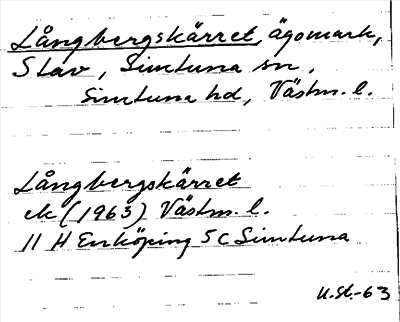 Långbergskärret, ägomark,
Stav, Simtuna sn,
Simtuna hd, Västm. l.
Långbergskärret
ek (1963) Västm. l.
11 H Enköping 5 c Simtuna
U.St.-63